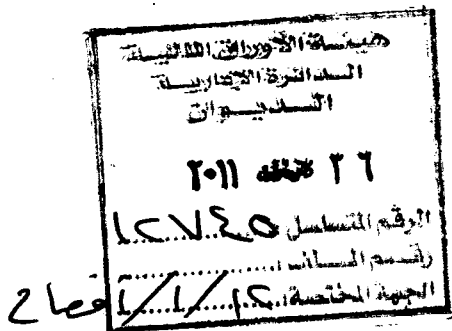 هيئة الأوراق المالية
الدائرة الإدارية
الديوان
٢٦ ٢٠١١
الرقم المتسلسل ١٢٧٤٥
رقم الملف
الجهة المختصة ١/١/١٢